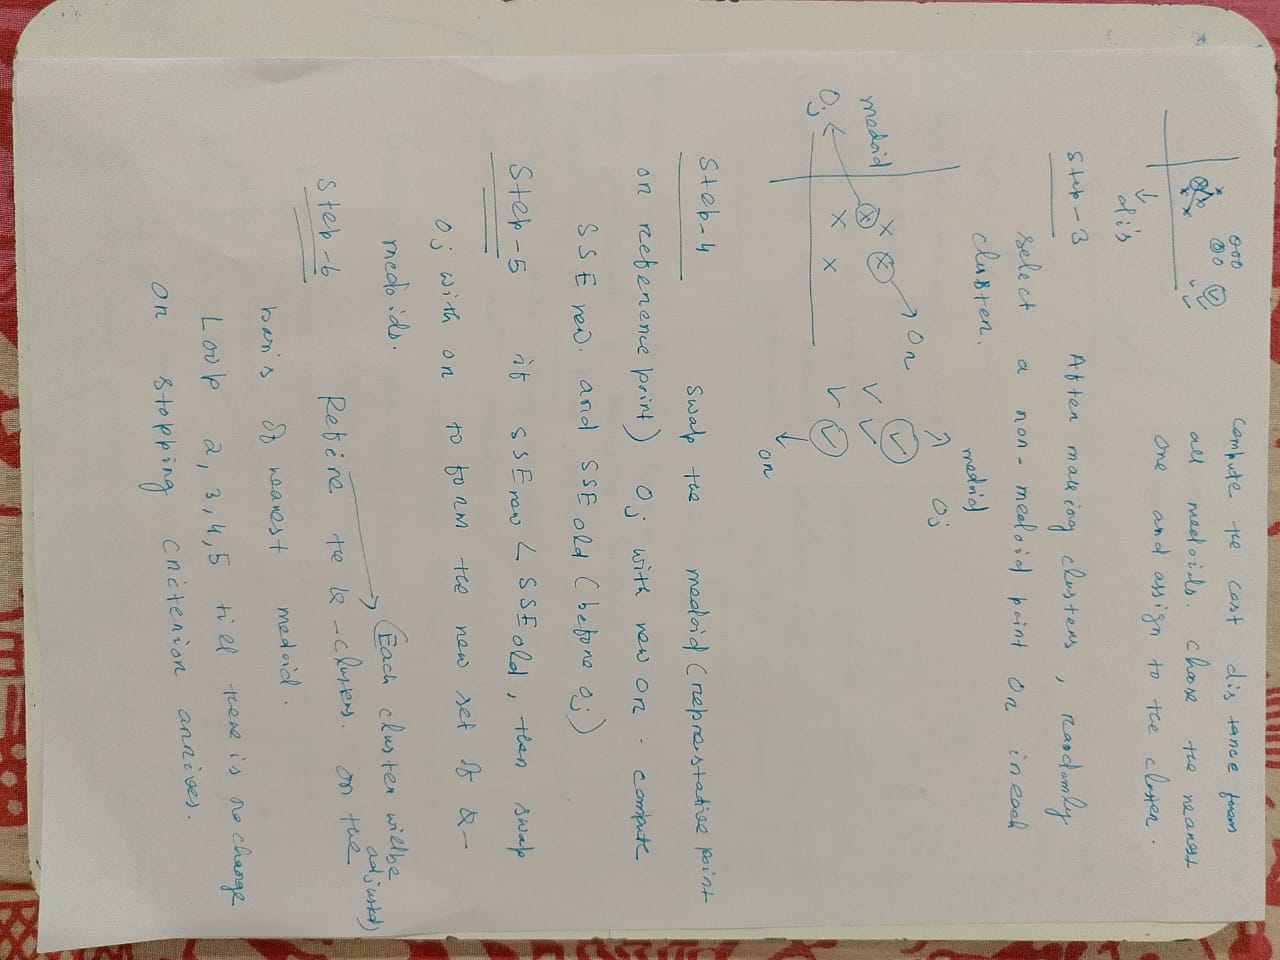 compute the cost distance from
all medoids. choose the nearest
one and assign to the cluster.
dis
Step-3 After making clusters, randomly
select a non-medoid point Or in each
cluster.
medoid
Oj
Or
medoid
Oj
Or
Step-4 swap the medoid (represtative point
or reference point) Oj with new Or. compute
SSE new. and SSE old (before Oj)
Step-5 if SSE new < SSE old, then swap
Oj with Or to form the new set of k-
medoids.
(Each cluster will be
adjusted)
Step-6 Refine the k-clusters. on the
basis of nearest medoid.
Loop 2,3,4,5 till there is no change
or stopping criterion arrives.